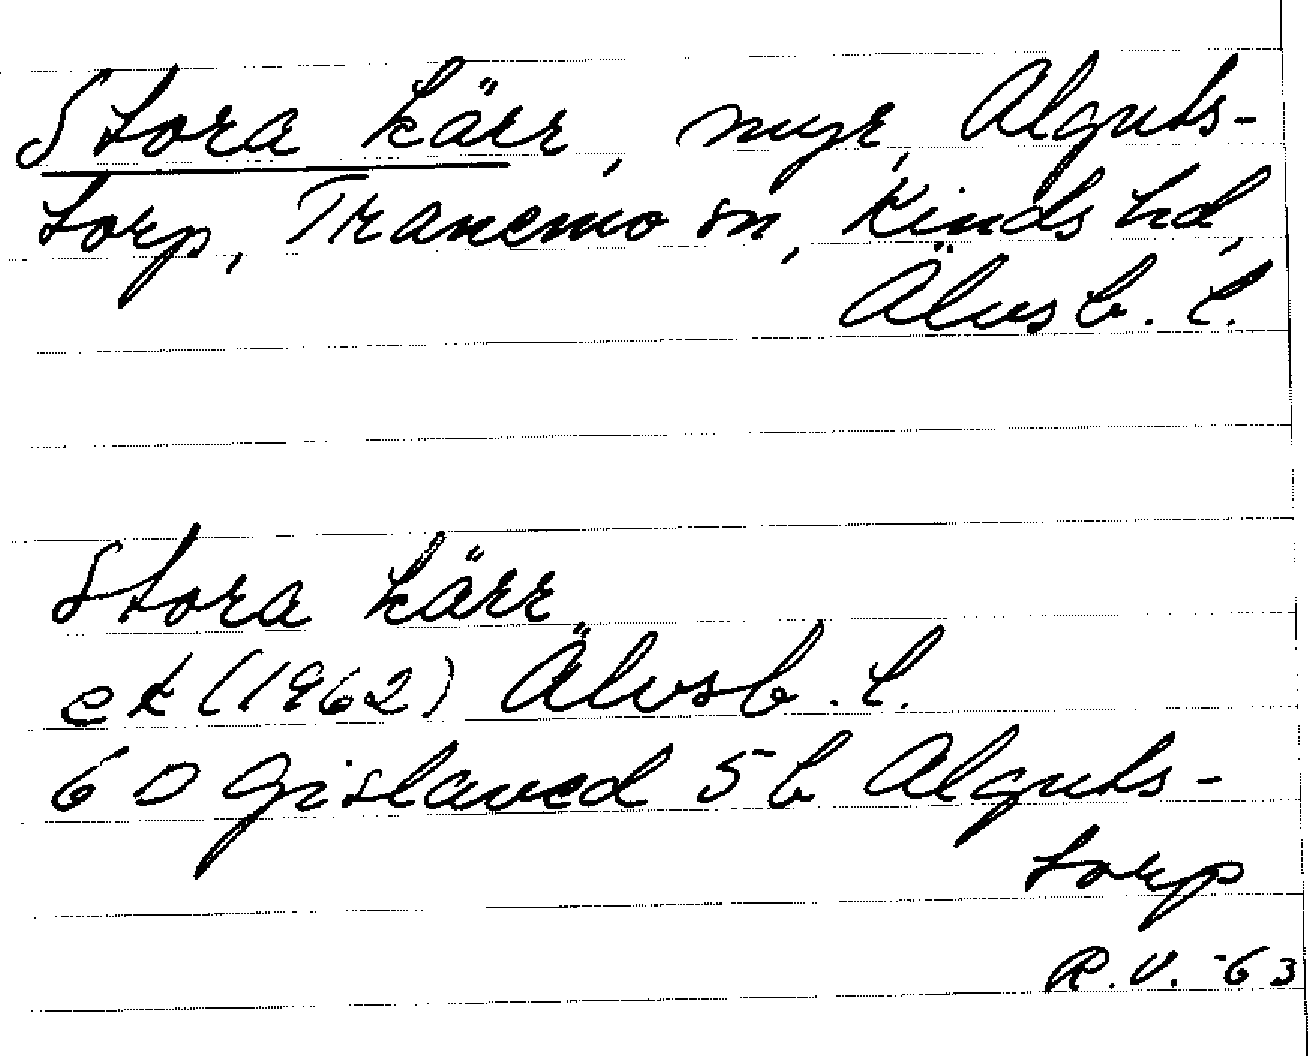 Stora kärr, myr, Alguts-
torp, Tranemo sn, Kinds hd,
Älvsb. l.
Stora kärr
ek (1962) Älvsb. l.
6 D Gislaved 5 b Alguts-
torp
R.V. -63